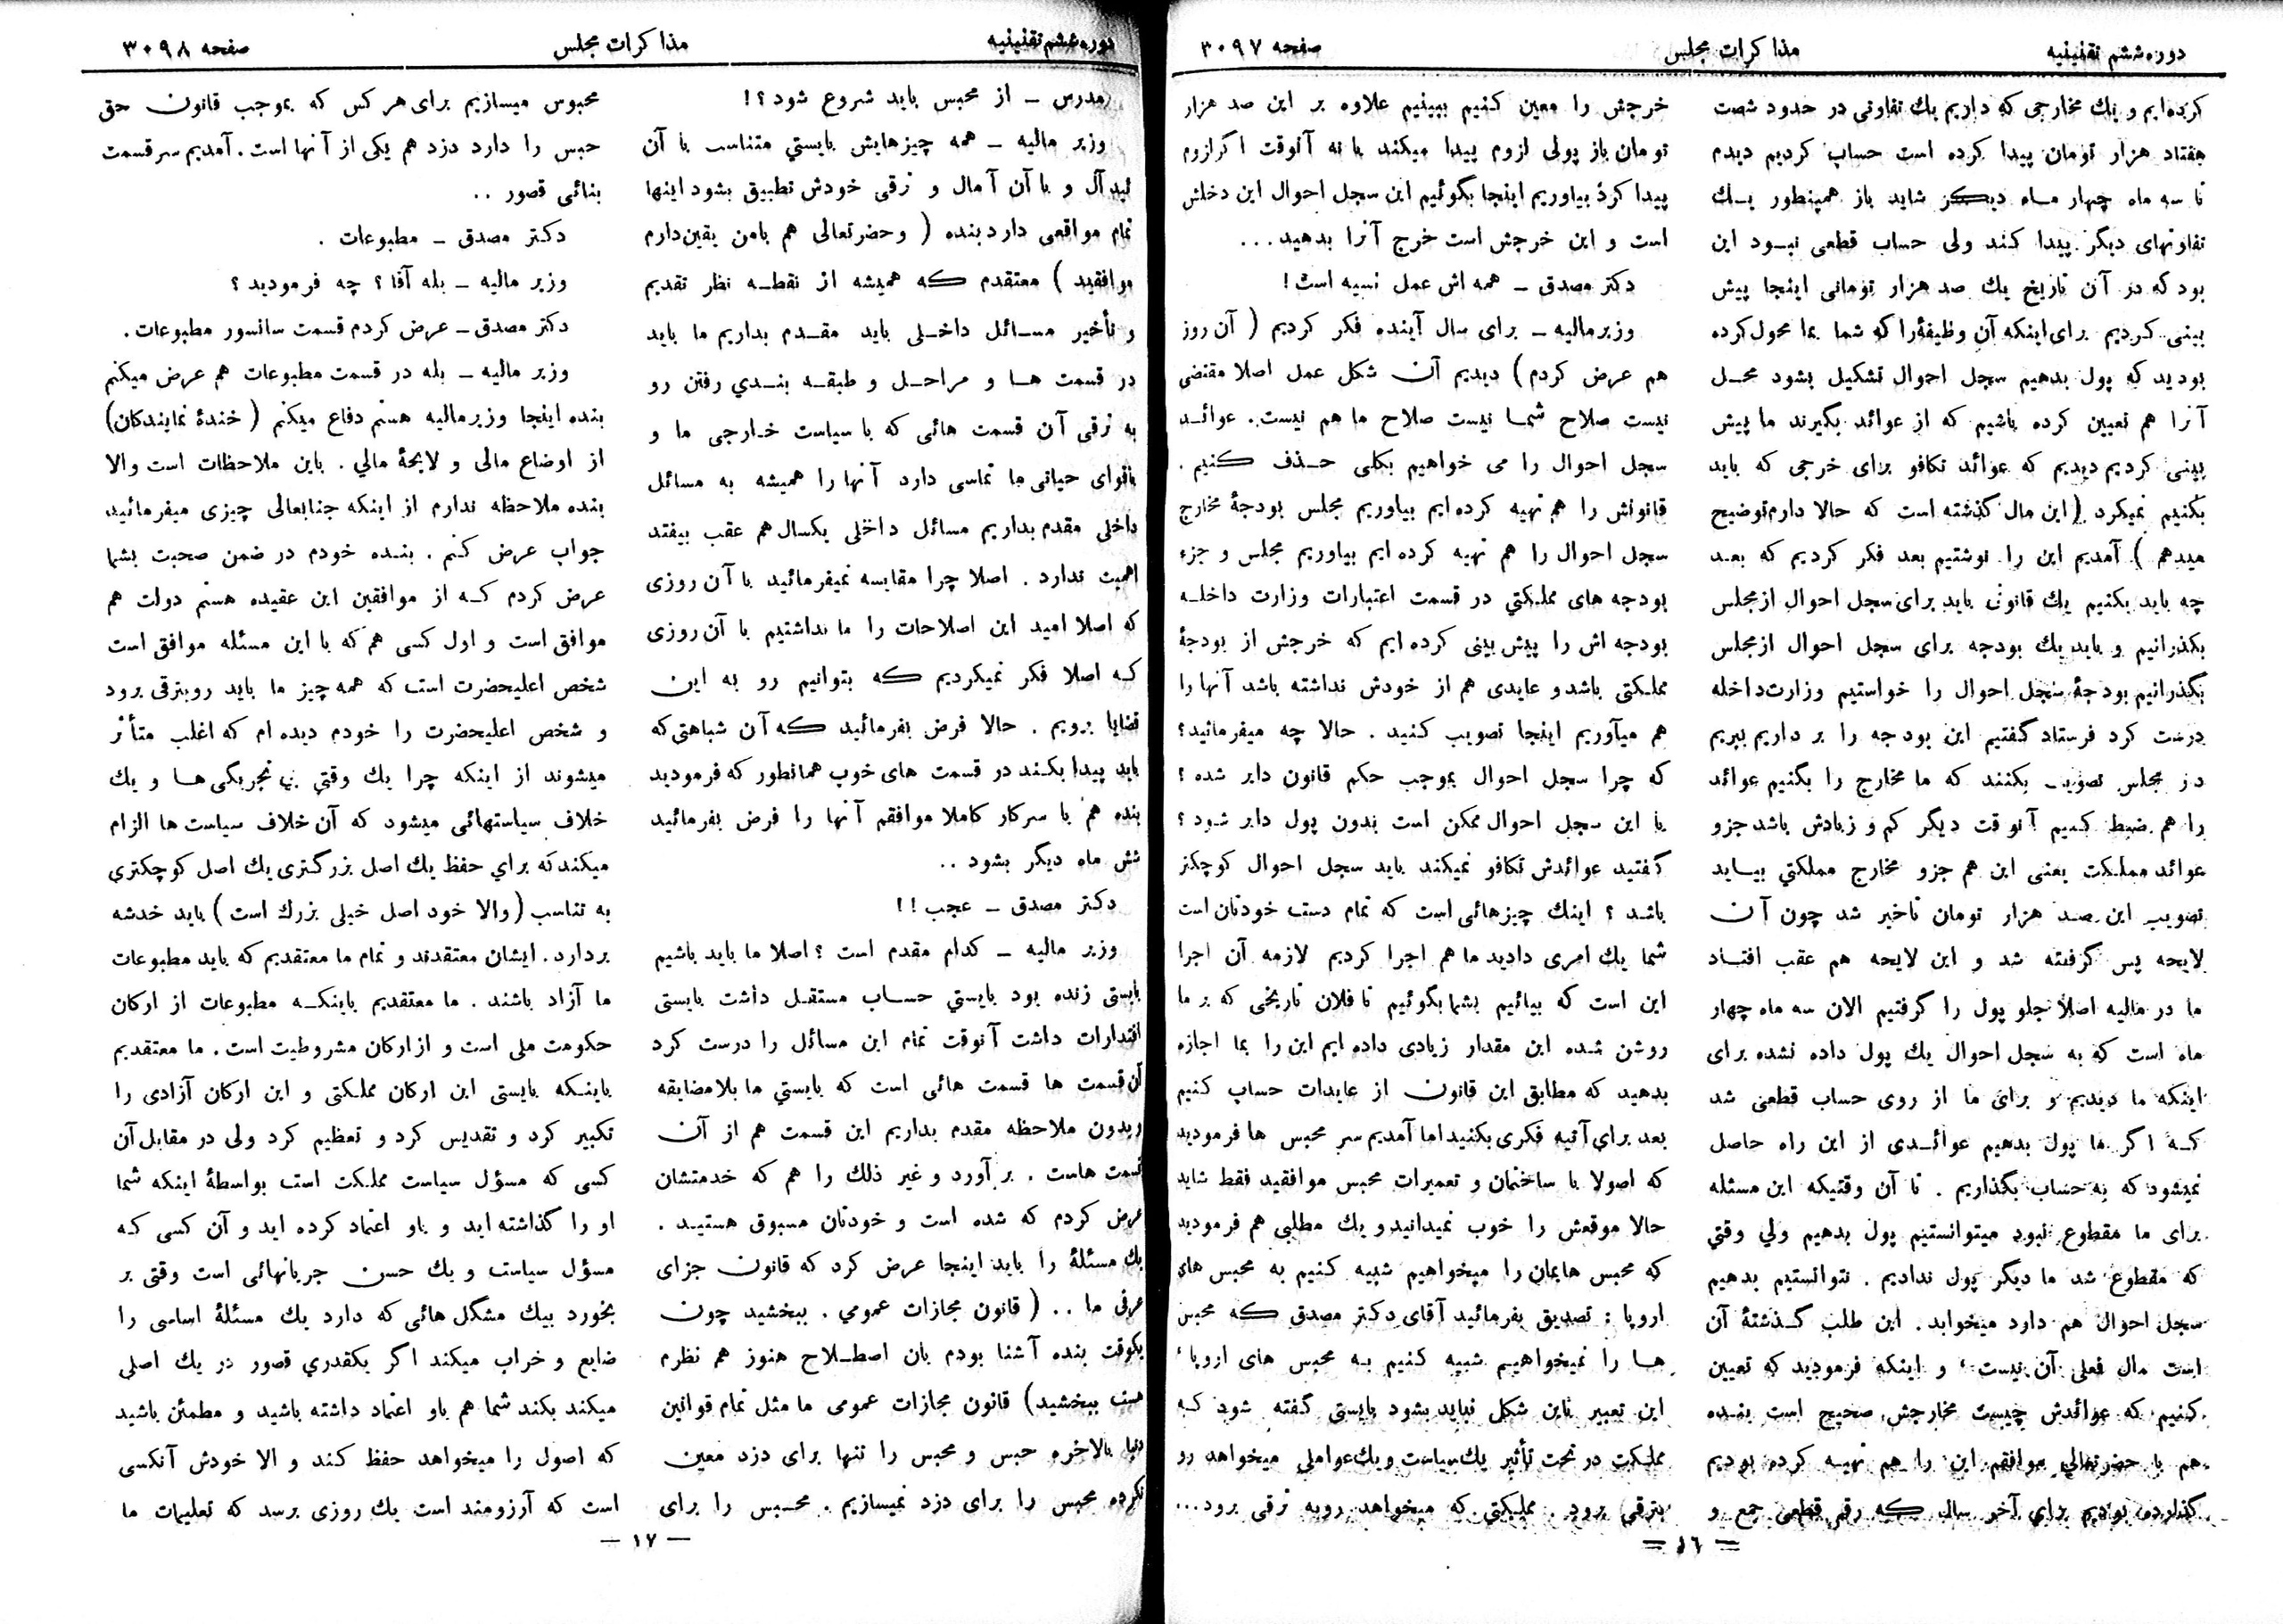 دوره ششم تقنینیه
مذاکرات مجلس
صفحه ۳۰۹۷
کرده‌ایم و یك مخارجی که داریم یك تفاوتی در حدود شصت
هفتاد هزار تومان پیدا کرده است حساب کردیم دیدم
تا سه ماه چهار ماه دیگر شاید باز همینطور یك
تفاوتهای دیگر پیدا کند ولی حساب قطعی نبود این
بود که در آن تاریخ یك صد هزار تومانی اینجا پیش
بینی کردیم برای اینکه آن وظیفهٔ را که شما بما محول کرده
بودید که پول بدهیم سجل احوال تشکیل بشود محل
آنرا هم تعیین کرده باشیم که از عوائد بگیرند ما پیش
بینی کردیم دیدیم که عوائد تکافو برای خرجی که باید
بکنیم نمیکرد (این مال گذشته است که حالا دارم توضیح
میدهم ) آمدیم این را نوشتیم بعد فکر کردیم که بعد
چه باید بکنیم یك قانونی باید برای سجل احوال از مجلس
بگذرانیم و باید یك بودجه برای سجل احوال از مجلس
بگذرانیم بودجهٔ سجل احوال را خواستیم وزارت داخله
درست کرد فرستاد گفتیم این بودجه را بر داریم ببریم
در مجلس تصویب بکنند که ما مخارج را بکنیم عوائد
را هم ضبط کنیم آنوقت دیگر کم و زیادش باشد جزو
عوائد مملکت یعنی این هم جزو مخارج مملکتي بیاید
تصویب این صد هزار تومان تاخیر شد چون آن
لایحه پس گرفته شد و این لایحه هم عقب افتاد
ما در مالیه اصلا جلو پول را گرفتیم الان سه ماه چهار
ماه است که به سجل احوال یك پول داده نشده برای
اینکه ما دیدیم و برای ما از روی حساب قطعی شد
که اگر ما پول بدهیم عوائدی از این راه حاصل
نمیشود که به حساب بگذاریم . تا آن وقتیکه این مسئله
برای ما مقطوع نبود میتوانستیم پول بدهیم ولي وقتي
که مقطوع شد ما دیگر پول ندادیم . نتوانستیم بدهیم
سجل احوال هم دارد میخوابد . این طلب گذشتهٔ آن
است مال فعلی آن نیست ، و اینکه فرمودید که تعیین
کنیم که عوائدش چیست مخارجش صحیح است بنده
هم با حضرتعالي موافقم این را هم تهیه کرده بودیم
گذارده بودیم برای آخر سال که رقم قطعی جمع و
خرجش را معین کنیم ببینیم علاوه بر این صد هزار
تومان باز پولی لزوم پیدا میکند یا نه آنوقت اگر لزوم
پیدا کرد بیاوریم اینجا بگوئیم این سجل احوال این دخلش
است و این خرجش است خرج آنرا بدهید...
دکتر مصدق ـ همه اش عمل نسیه است !
وزیر مالیه ـ برای سال آینده فکر کردیم ( آن روز
هم عرض کردم ) دیدیم آن شکل عمل اصلا مقتضی
نیست صلاح شما نیست صلاح ما هم نیست . عوائد
سجل احوال را می خواهیم بکلی حذف کنیم .
قانونش را هم تهیه کرده ایم بیاوریم مجلس بودجهٔ مخارج
سجل احوال را هم تهیه کرده ایم بیاوریم مجلس و جزء
بودجه های مملکتي در قسمت اعتبارات وزارت داخله
بودجه اش را پیش بینی کرده ایم که خرجش از بودجهٔ
مملکتی باشد و عایدی هم از خودش نداشته باشد آنها را
هم میآوریم اینجا تصویب کنید . حالا چه میفرمائید؟
که چرا سجل احوال بموجب حکم قانون دایر شده ؟
یا این سجل احوال ممکن است بدون پول دایر شود ؟
گفتید عوائدش تکافو نمیکند باید سجل احوال کوچکتر
باشد ؟ اینك چیزهائی است که تمام دست خودتان است
شما یك امری دادید ما هم اجرا کردیم لازمه آن اجرا
این است که بیائیم بشما بگوئیم تا فلان تاریخی که بر ما
روشن شده این مقدار زیادی داده ایم این را بما اجازه
بدهید که مطابق این قانون از عایدات حساب کنیم
بعد برای آتیه فکری بکنید اما آمدیم سر محبس ها فرمودید
که اصولا با ساختمان و تعمیرات محبس موافقید فقط شاید
حالا موقعش را خوب نمیدانید و یك مطلبی هم فرمودید
که محبس هایمان را میخواهیم شبیه کنیم به محبس های
اروپا : تصدیق بفرمائید آقای دکتر مصدق که محبس
ها را نمیخواهیم شبیه کنیم به محبس های اروپا ،
این تعبیر باین شکل نباید بشود بایستی گفته شود که
مملکت در تحت تأثیر یك سیاست و یك عواملی میخواهد رو
بترقی برود . مملکتي که میخواهد روبه ترقی برود...
ـ ۱۶ ـ
دوره ششم تقنینیه
مذاکرات مجلس
صفحه ۳۰۹۸
مدرس ـ از محبس باید شروع شود ؟!
وزیر مالیه ـ همه چیزهایش بایستي متناسب با آن
ایدآل و با آن آمال و ترقی خودش تطبیق بشود اینها
تمام مواقعی دارد بنده ( و حضرتعالی هم بامن یقین دارم
موافقید ) معتقدم که همیشه از نقطه نظر تقدیم
و تأخیر مسائل داخلی باید مقدم بداریم ما باید
در قسمت ها و مراحل و طبقه بندي رفتن رو
به ترقی آن قسمت هائی که با سیاست خارجی ما و
باقوای حیاتی ما تماسی دارد آنها را همیشه به مسائل
داخلی مقدم بداریم مسائل داخلی یکسال هم عقب بیفتد
اهمیت ندارد . اصلا چرا مقایسه نمیفرمائید با آن روزی
که اصلا امید این اصلاحات را ما نداشتیم با آن روزی
که اصلا فکر نمیکردیم که بتوانیم رو به این
قضایا برویم . حالا فرض بفرمائید که آن شباهتی که
باید پیدا بکند در قسمت های خوب همانطور که فرمودید
بنده هم با سرکار کاملا موافقم آنها را فرض بفرمائید
شش ماه دیگر بشود ..
دکتر مصدق ـ عجب !!
وزیر مالیه ـ کدام مقدم است ؟ اصلا ما باید باشیم
بایستی زنده بود بایستي حساب مستقل داشت بایستی
اقتدارات داشت آنوقت تمام این مسائل را درست کرد
آن قسمت ها قسمت هائی است که بایستي ما بلامضایقه
و بدون ملاحظه مقدم بداریم این قسمت هم از آن
قسمت هاست . بر آورد و غیر ذلك را هم که خدمتشان
عرض کردم که شده است و خودتان مسبوق هستید .
یك مسئلهٔ را باید اینجا عرض کرد که قانون جزای
عرفی ما .. ( قانون مجازات عمومي . ببخشید چون
یکوقت بنده آشنا بودم بان اصطلاح هنوز هم نظرم
هست ببخشید) قانون مجازات عمومی ما مثل تمام قوانین
دنیا بالاخره حبس و محبس را تنها برای دزد معین
نکرده محبس را برای دزد نمیسازیم . محبس را برای
محبوس میسازیم برای هر کس که بموجب قانون حق
حبس را دارد دزد هم یکی از آنها است . آمدیم سر قسمت
بنائی قصور ..
دکتر مصدق ـ مطبوعات .
وزیر مالیه ـ بله آقا ؟ چه فرمودید ؟
دکتر مصدق ـ عرض کردم قسمت سانسور مطبوعات .
وزیر مالیه ـ بله در قسمت مطبوعات هم عرض میکنم
بنده اینجا وزیر مالیه هستم دفاع میکنم ( خندهٔ نمایندگان)
از اوضاع مالی و لایحهٔ مالي . باین ملاحظات است والا
بنده ملاحظه ندارم از اینکه جنابعالی چیزی میفرمائید
جواب عرض کنم . بنده خودم در ضمن صحبت بشما
عرض کردم که از موافقین این عقیده هستم دولت هم
موافق است و اول کسی هم که با این مسئله موافق است
شخص اعلیحضرت است که همه چیز ما باید روبترقی برود
و شخص اعلیحضرت را خودم دیده ام که اغلب متأثر
میشوند از اینکه چرا یك وقتي بي تجربگی ها و یك
خلاف سیاستهائی میشود که آن خلاف سیاست ها الزام
میکند که براي حفظ یك اصل بزرگتری یك اصل کوچکتري
به تناسب (والا خود اصل خیلی بزرك است) باید خدشه
بردارد . ایشان معتقدند و تمام ما معتقدیم که باید مطبوعات
ما آزاد باشند . ما معتقدیم باینکه مطبوعات از ارکان
حکومت ملی است و از ارکان مشروطیت است . ما معتقدیم
باینکه بایستی این ارکان مملکتی و این ارکان آزادی را
تکبیر کرد و تقدیس کرد و تعظیم کرد ولی در مقابل آن
کسی که مسؤل سیاست مملکت است بواسطهٔ اینکه شما
او را گذاشته اید و باو اعتماد کرده اید و آن کسی که
مسؤل سیاست و یك حسن جریانهائی است وقتی بر
بخورد بیك مشکل هائی که دارد یك مسئلهٔ اساسی را
ضایع و خراب میکند اگر یکقدري قصور در یك اصلی
میکند بکند شما هم باو اعتماد داشته باشید و مطمئن باشید
که اصول را میخواهد حفظ کند و الا خودش آنکسی
است که آرزومند است یك روزی برسد که تعلیمات ما
ـ ۱۷ ـ